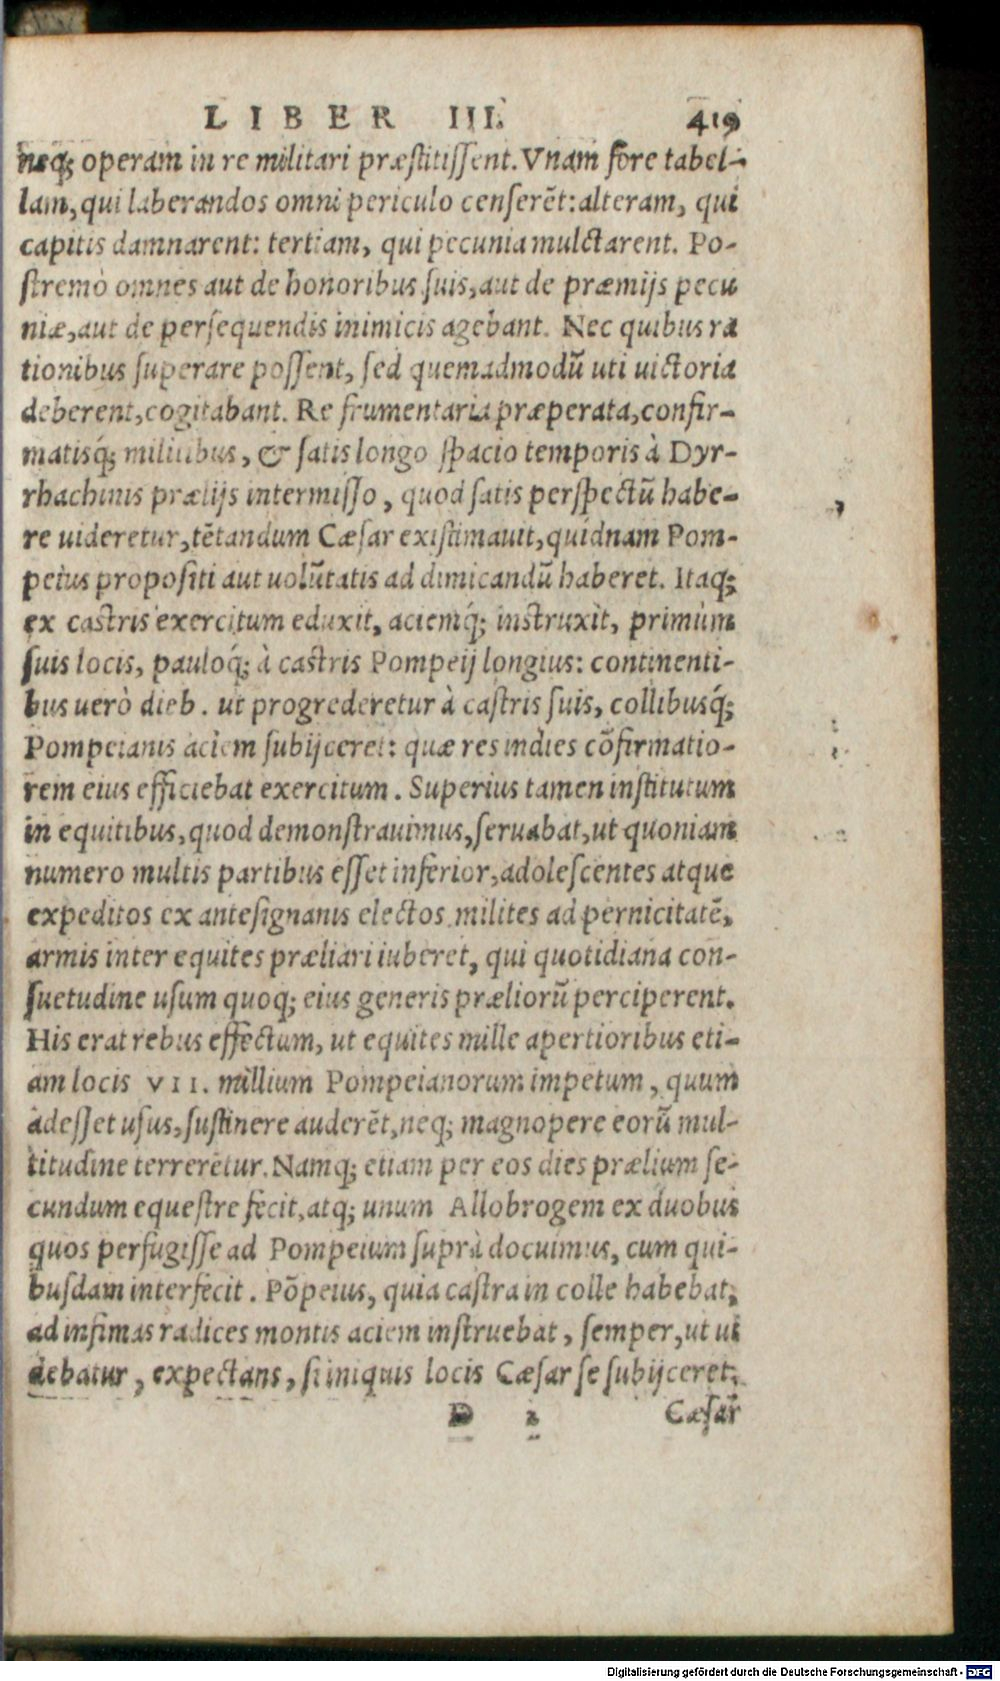 LIBER III. 419
neq; operam in re militari præstitissent. Vnam fore tabel-
lam, qui laberandos omni periculo censerēt: alteram, qui
capitis damnarent: tertiam, qui pecunia mulctarent. Po-
stremò omnes aut de honoribus suis, aut de præmijs pecu
niæ, aut de persequendis inimicis agebant. Nec quibus ra
tionibus superare possent, sed quemadmodū uti uictoria
deberent, cogitabant. Re frumentaria præperata, confir-
matisq́; militibus, & satis longo spacio temporis à Dyr-
rhachinis prælijs intermisso, quod satis perspectū habe-
re uideretur, tētandum Cæsar existimauit, quidnam Pom-
peius propositi aut uolūtatis ad dimicandū haberet. Itaq;
ex castris exercitum eduxit, aciemq́; instruxit, primùm
suis locis, pauloq́; à castris Pompeij longius: continenti-
bus uerò dieb. ut progrederetur à castris suis, collibusq́;
Pompeianis aciem subijceret: quæ res indies cōfirmatio-
rem eius efficiebat exercitum. Superius tamen institutum
in equitibus, quod demonstrauimus, seruabat, ut quoniam
numero multis partibus esset inferior, adolescentes atque
expeditos ex antesignanis electos milites ad pernicitatē,
armis inter equites præliari iuberet, qui quotidiana con-
suetudine usum quoq; eius generis præliorū perciperent.
His erat rebus effectum, ut equites mille apertioribus eti-
am locis VII. millium Pompeianorum impetum, quum
adesset usus, sustinere auderēt, neq; magnopere eorū mul-
titudine terrerētur. Namq; etiam per eos dies prælium se-
cundum equestre fecit, atq; unum Allobrogem ex duobus
quos perfugisse ad Pompeium suprà docuimus, cum qui-
busdam interfecit. Pōpeius, quia castra in colle habebat,
ad infimas radices montis aciem instruebat, semper, ut ui
debatur, expectans, si iniquis locis Cæsar se subijceret.
D 2 Cæsar
Digitalisierung gefördert durch die Deutsche Forschungsgemeinschaft - DFG